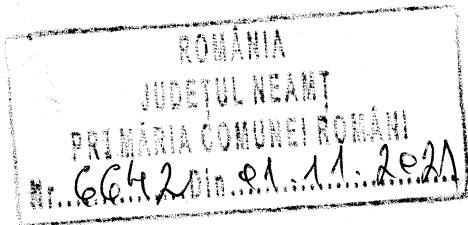 ROMÂNIA
JUDEȚUL NEAMȚ
PRIMĂRIA COMUNEI ROMÂNI
Nr. 6642 Din 01.11.2021